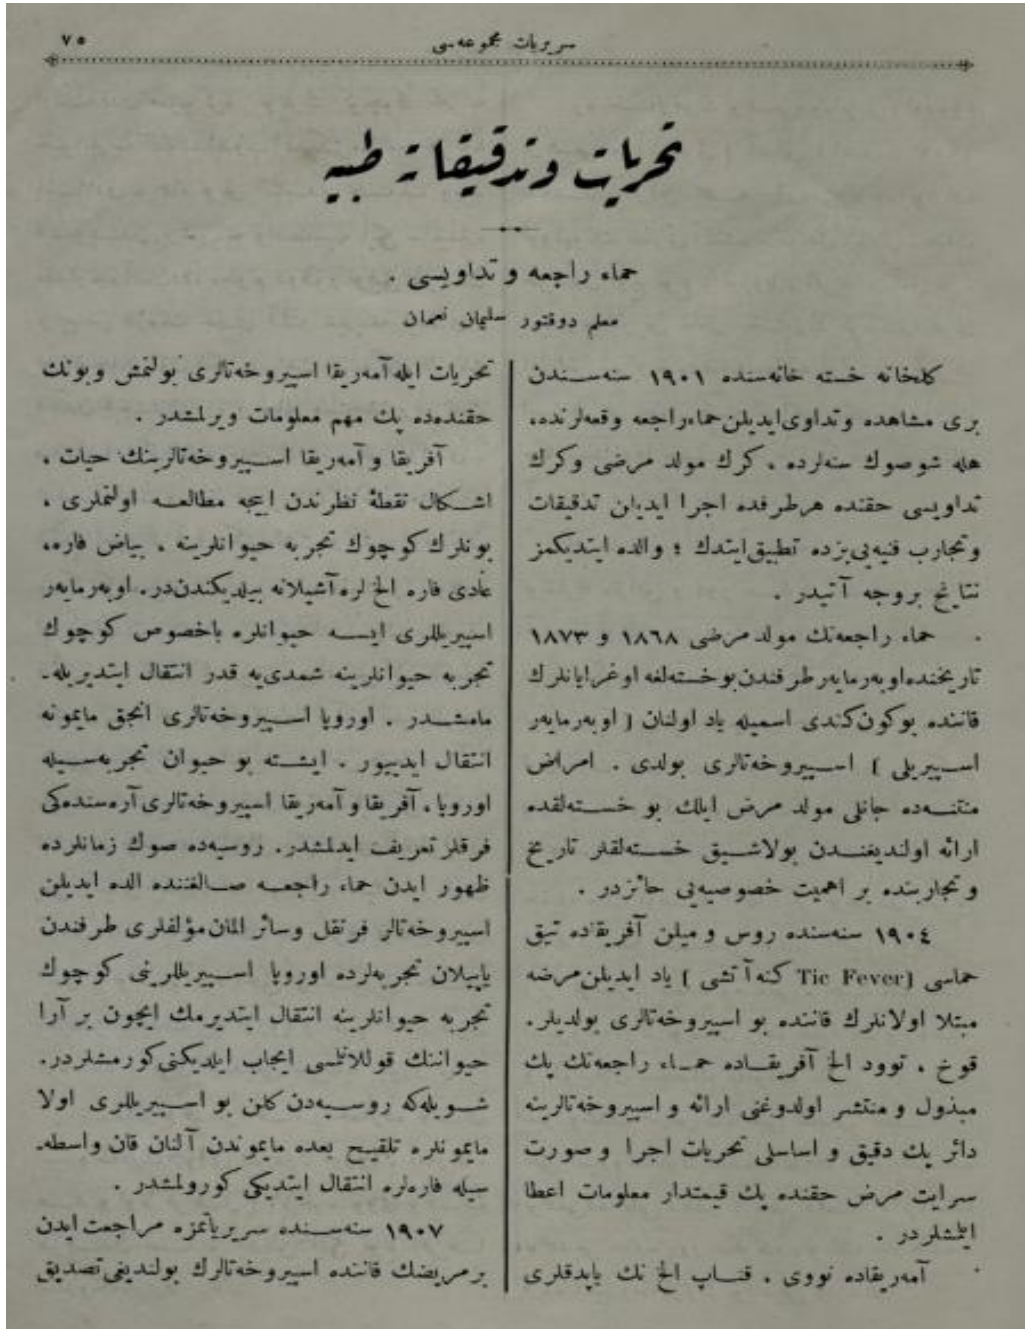 ٧٥
سریریات مجموعه‌سی
تحریات و تدقیقات طبیه
حماء راجعه و تداویسی .
معلم دوقتور سلیمان نعمان
كلخانه خسته خانه‌سنده ١٩٠١ سنه‌سندن
بری مشاهده و تداوی ایدیلن حماء راجعه وقعه‌لرنده،
هله شو صوك سنه‌لرده ، كرك مولد مرضی و كرك
تداویسی حقنده هر طرفده اجرا ایدیلن تدقیقات
و تجارب فنیه‌یی بزده تطبیق ایتدك ؛ و الده ایتدیكمز
نتایج بروجه آتیدر .
حماء راجعه‌نك مولد مرضی ١٨٦٨ و ١٨٧٣
تاریخنده اوبه‌رمایه‌ر طرفندن بو خسته‌لغه اوغرایانلرك
قاننده بوكون كندی اسمیله یاد اولنان ( اوبه‌رمایه‌ر
اسپیریلی ) اسپیروخه‌تالری بولدی . امراض
منتنه‌ده جانلی مولد مرض ایلك بو خسته‌لقده
ارائه اولندیغندن بولاشیق خسته‌لقلر تاریخ
و تجاربنده بر اهمیت خصوصیه‌یی حائزدر .
١٩٠٤ سنه‌سنده روس و میلن آفریقاده تیق
حماسی (Tic Fever كنه آتشی ) یاد ایدیلن مرضه
مبتلا اولانلرك قاننده بو اسپیروخه‌تالری بولدیلر .
قوخ ، توود الخ آفریقاده حماء راجعه‌نك پك
مبذول و منتشر اولدوغنی ارائه و اسپیروخه‌تالرینه
دائر پك دقیق و اساسلی تحریات اجرا و صورت
سرایت مرض حقنده پك قیمتدار معلومات اعطا
ایتمشلردر .
آمه‌ریقاده نووی ، قناپ الخ نك یاپدقلری
تحریات ایله آمه‌ریقا اسپیروخه‌تالری بولنمش و بونك
حقنده‌ده پك مهم معلومات ویرلمشدر .
آفریقا و آمه‌ریقا اسپیروخه‌تالرینك حیات ،
اشكال نقطۀ نظرندن ایجه مطالعه اولنملری ،
بونلرك كوچوك تجربه حیوانلرینه ، بیاض فاره،
عادی فاره الخ لره آشیلانه بیلدیكندن‌در. اوبه‌رمایه‌ر
اسپیریللری ایسه حیوانلره باخصوص كوچوك
تجربه حیوانلرینه شمدی‌یه قدر انتقال ایتدیریله‌-
مامشدر . اوروپا اسپیروخه‌تالری انجق مایمونه
انتقال ایدییور . ایشته بو حیوان تجربه‌سیله
اوروپا، آفریقا و آمه‌ریقا اسپیروخه‌تالری آره‌سنده‌كی
فرقلر تعریف ایدلمشدر. روسیه‌ده صوك زمانلرده
ظهور ایدن حماء راجعه صالغننده الده ایدیلن
اسپیروخه‌تالر فرنقل وسائر المان مؤلفلری طرفندن
یاپیلان تجربه‌لرده اوروپا اسپیریللرینی كوچوك
تجربه حیوانلرینه انتقال ایتدیرمك ایچون بر آرا
حیواننك قوللانلمسی ایجاب ایلدیكنی كورمشلردر.
شویله‌كه روسیه‌دن كلن بو اسپیریللری اولا
مایمونلره تلقیح بعده مایموندن آلنان قان واسطه-
سیله فاره‌لره انتقال ایتدیكی كورولمشدر .
١٩٠٧ سنه‌سنده سریریاتمزه مراجعت ایدن
بر مریضك قاننده اسپیروخه‌تالرك بولندیغی تصدیق